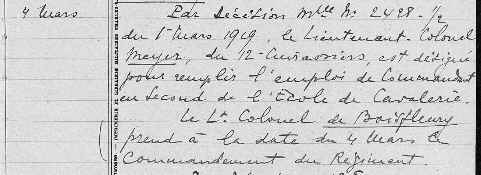 4 Mars
Par Décision Mlle No 2428-1/2
du 1er Mars 1919, le Lieutenant-Colonel
Meyer, du 12e Cuirassiers, est désigné
pour remplir l'emploi de Commandant
en Second de l'École de Cavalerie.
Le Lt Colonel de Boisfleury
prend à la date du 4 Mars le
Commandement du Régiment.